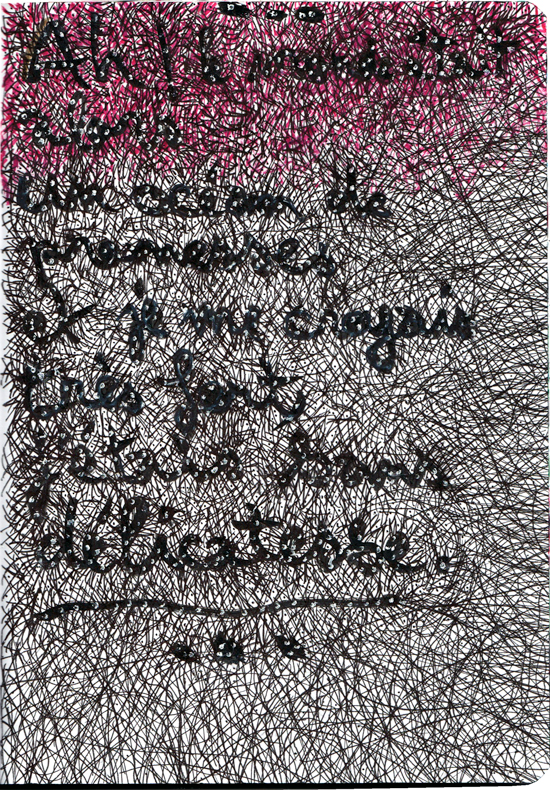 Ah ! le monde était
alors
Un océan de
promesses
et je me croyais
très fort,
j'étais sans
délicatesse.